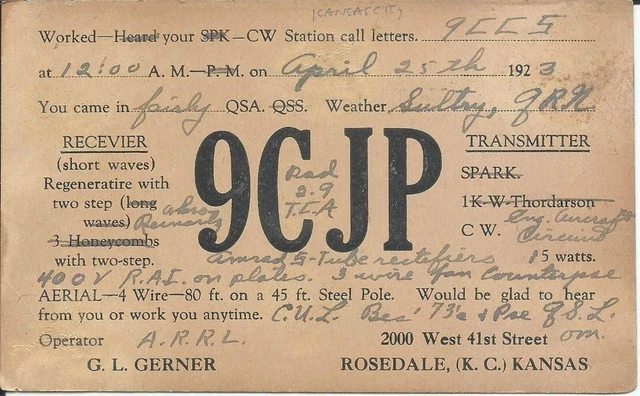 KANSAS CITY
Worked—Heard your SPK—CW Station call letters. 9CCS
at 12:00 A. M.—P. M. on April 25th 1923
You came in fairly QSA. QSS. Weather Sultry, QRN
RECEVIER
(short waves)
Regeneratire with
two step (long
waves)
3 Honeycombs
with two-step.
Reinartz
9CJP
Rad
2.9
T.C.A
TRANSMITTER
SPARK.
1 K-W-Thordarson
Eng. Aircraft
C W. Circuit
15 watts.
Amrad S-Tube rectifiers
400 V R.A.I. on plates. 3 wire fan Counterpoise
AERIAL—4 Wire—80 ft. on a 45 ft. Steel Pole. Would be glad to hear
from you or work you anytime. C.U.L. Bes' 73's + Pse QSL.
om.
Operator A.R.R.L. 2000 West 41st Street
G. L. GERNER ROSEDALE, (K. C.) KANSAS